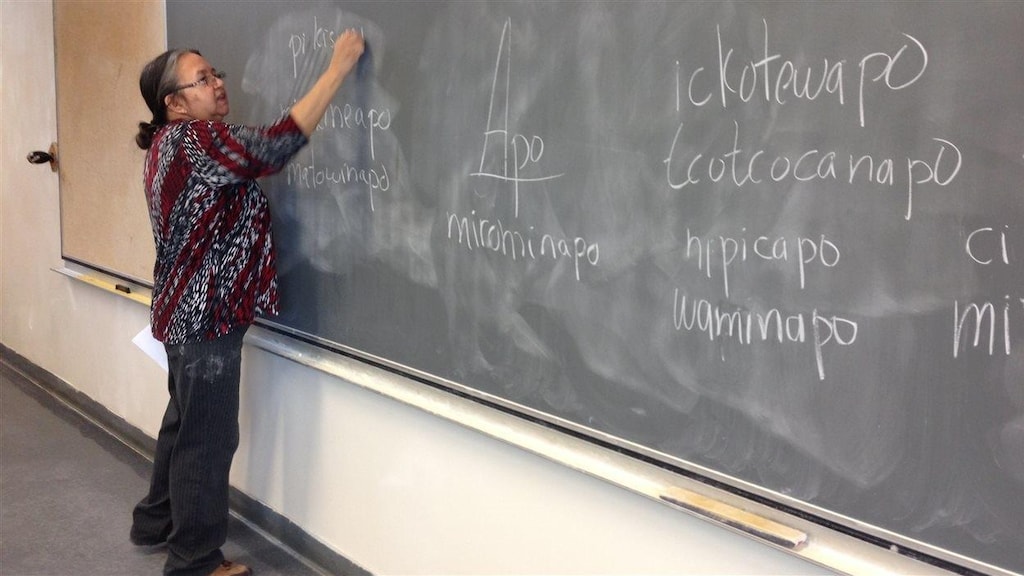 metowinapo
Apo
mirominapo
ickotewapo
tcotcocanapo
nipicapo
waminapo
ci
mi